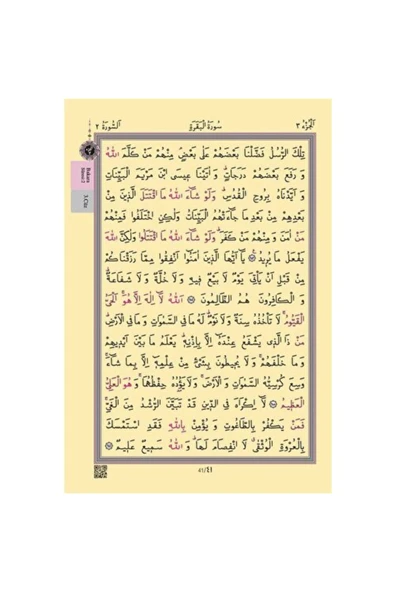 اَلْجُزْءُ ٣
سُورَةُ الْبَقَرَةِ
اَلسُّورَةُ ٢
تِلْكَ الرُّسُلُ فَضَّلْنَا بَعْضَهُمْ عَلٰى بَعْضٍ مِنْهُمْ مَنْ كَلَّمَ اللّٰهُ
وَ رَفَعَ بَعْضَهُمْ دَرَجَاتٍ وَ اٰتَيْنَا عٖيسَى ابْنَ مَرْيَمَ الْبَيِّنَاتِ
وَ اَيَّدْنَاهُ بِرُوحِ الْقُدُسِ وَلَوْ شَاءَ اللّٰهُ مَا اقْتَتَلَ الَّذٖينَ مِنْ
بَعْدِهِمْ مِنْ بَعْدِ مَا جَاءَتْهُمُ الْبَيِّنَاتُ وَلٰكِنِ اخْتَلَفُوا فَمِنْهُمْ
مَنْ اٰمَنَ وَ مِنْهُمْ مَنْ كَفَرَ وَلَوْ شَاءَ اللّٰهُ مَا اقْتَتَلُوا وَلٰكِنَّ اللّٰهَ
يَفْعَلُ مَا يُرٖيدُ ۝ يَا اَيُّهَا الَّذٖينَ اٰمَنُوا اَنْفِقُوا مِمَّا رَزَقْنَاكُمْ
مِنْ قَبْلِ اَنْ يَاْتِيَ يَوْمٌ لَا بَيْعٌ فٖيهِ وَلَا خُلَّةٌ وَلَا شَفَاعَةٌ
وَ الْكَافِرُونَ هُمُ الظَّالِمُونَ ۝ اَللّٰهُ لَا اِلٰهَ اِلَّا هُوَ اَلْحَيُّ
الْقَيُّومُ لَا تَاْخُذُهُ سِنَةٌ وَلَا نَوْمٌ لَهُ مَا فِي السَّمٰوَاتِ وَ مَا فِي الْاَرْضِ
مَنْ ذَا الَّذٖي يَشْفَعُ عِنْدَهُ اِلَّا بِاِذْنِهٖ يَعْلَمُ مَا بَيْنَ اَيْدٖيهِمْ
وَ مَا خَلْفَهُمْ وَلَا يُحٖيطُونَ بِشَيْءٍ مِنْ عِلْمِهٖ اِلَّا بِمَا شَاءَ
وَسِعَ كُرْسِيُّهُ السَّمٰوَاتِ وَ الْاَرْضَ وَلَا يَؤُدُهُ حِفْظُهُمَا وَ هُوَ الْعَلِيُّ
الْعَظٖيمُ ۝ لَا اِكْرَاهَ فِي الدّٖينِ قَدْ تَبَيَّنَ الرُّشْدُ مِنَ الْغَيِّ
فَمَنْ يَكْفُرْ بِالطَّاغُوتِ وَ يُؤْمِنْ بِاللّٰهِ فَقَدِ اسْتَمْسَكَ
بِالْعُرْوَةِ الْوُثْقٰى لَا انْفِصَامَ لَهَا وَ اللّٰهُ سَمٖيعٌ عَلٖيمٌ ۝
Bakara
3.Cüz
٤١/41